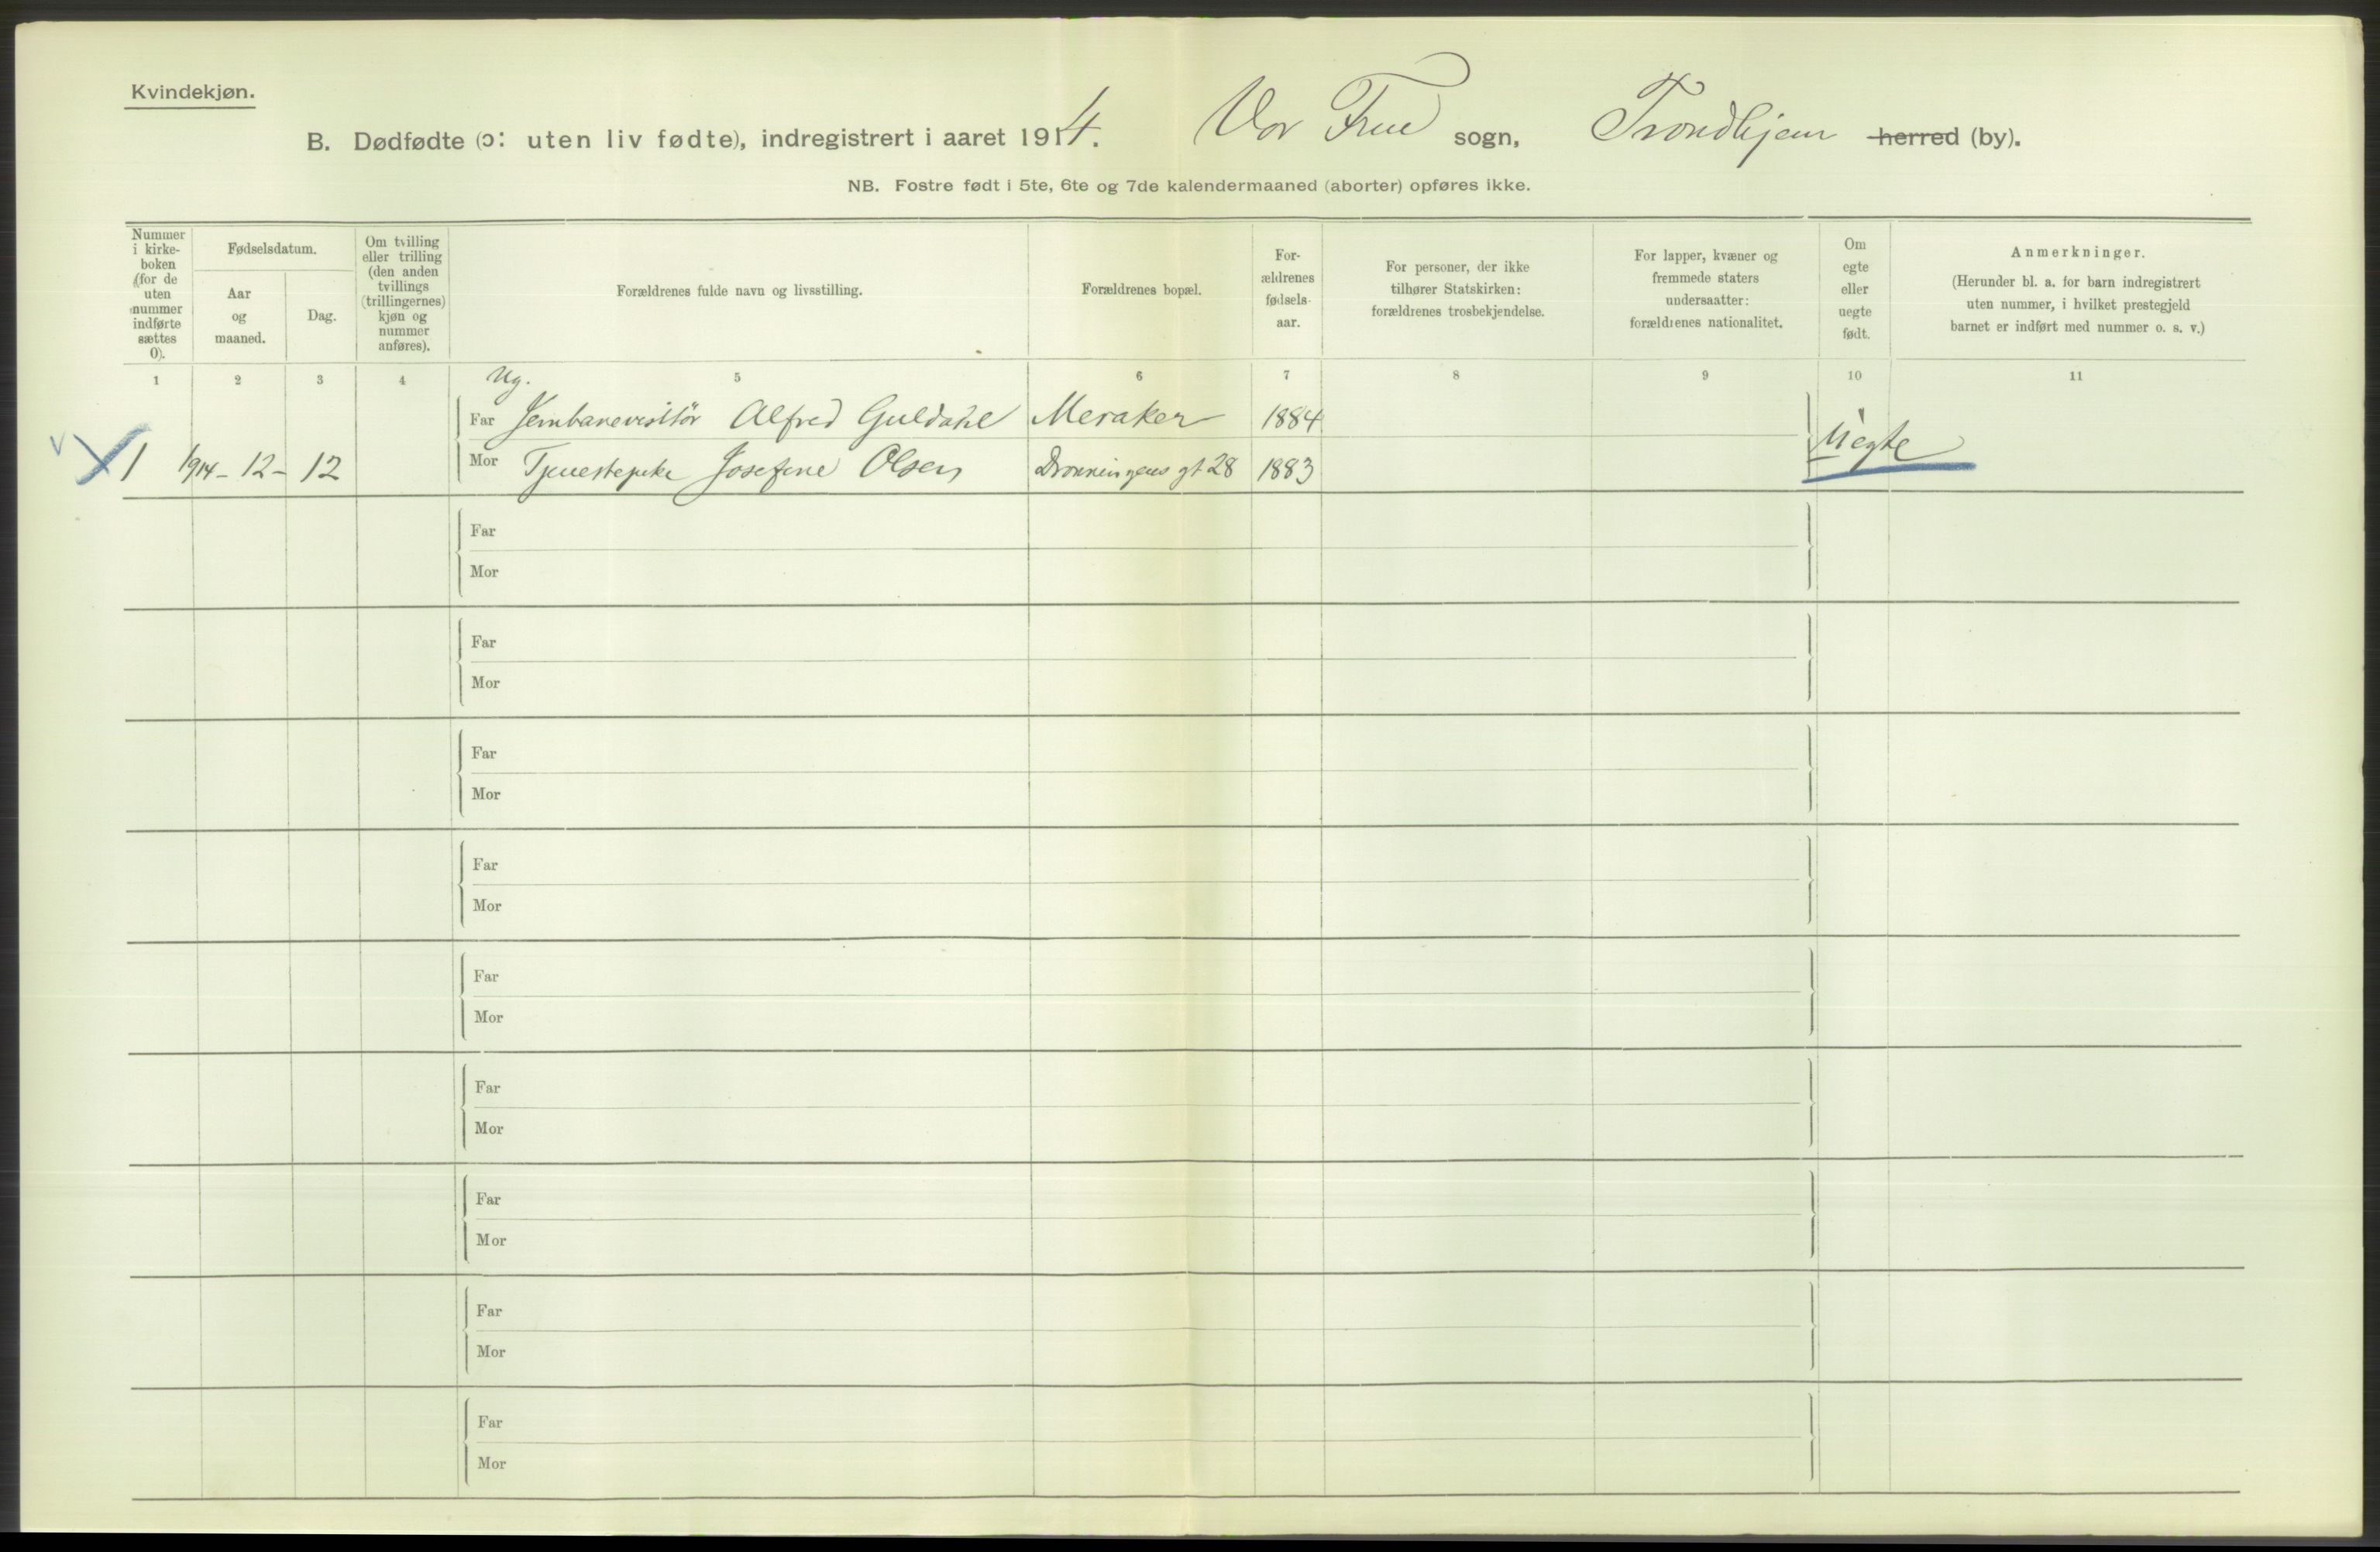 Kvindekjøn.
B. Dødfødte (ɔ: uten liv fødte), indregistrert i aaret 1914. Vor Frue sogn, Trondhjem herred (by).
NB. Fostre født i 5te, 6te og 7de kalendermaaned (aborter) opføres ikke.
Nummer i kirke-boken (for de uten nummer indførte sættes 0).
Fødselsdatum.
Aar og maaned.
Dag.
Om tvilling eller trilling (den anden tvillings (trillingernes) kjøn og nummer anføres).
Forældrenes fulde navn og livsstilling.
Forældrenes bopæl.
For-ældrenes fødsels-aar.
For personer, der ikke tilhører Statskirken: forældrenes trosbekjendelse.
For lapper, kvæner og fremmede staters undersaatter: forældrenes nationalitet.
Om egte eller uegte født.
Anmerkninger.
(Herunder bl. a. for barn indregistrert uten nummer, i hvilket prestegjeld barnet er indført med nummer o. s. v.)
1 2 3 4 5 6 7 8 9 10 11
Ug.
Far Jernbanevisitør Alfred Guldahl Meraker 1884
1 1914-12- 12 Mor Tjenestepike Josefine Olsen Dronningens gt 28 1883 Uegte
Far
Mor
Far
Mor
Far
Mor
Far
Mor
Far
Mor
Far
Mor
Far
Mor
Far
Mor
Far
Mor